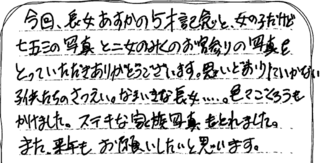 今回、長女あすかの5才記念と、女の子だけど
七五三の写真と二女のみくのお宮参りの写真を
とっていただきありがとうございます。思いどおりにいかない
子供たちのさつえい。なまいきな長女.....。色々ごくろうを
かけました。ステキな家族写真もとれました。
また、来年もお願いしたいと思います。